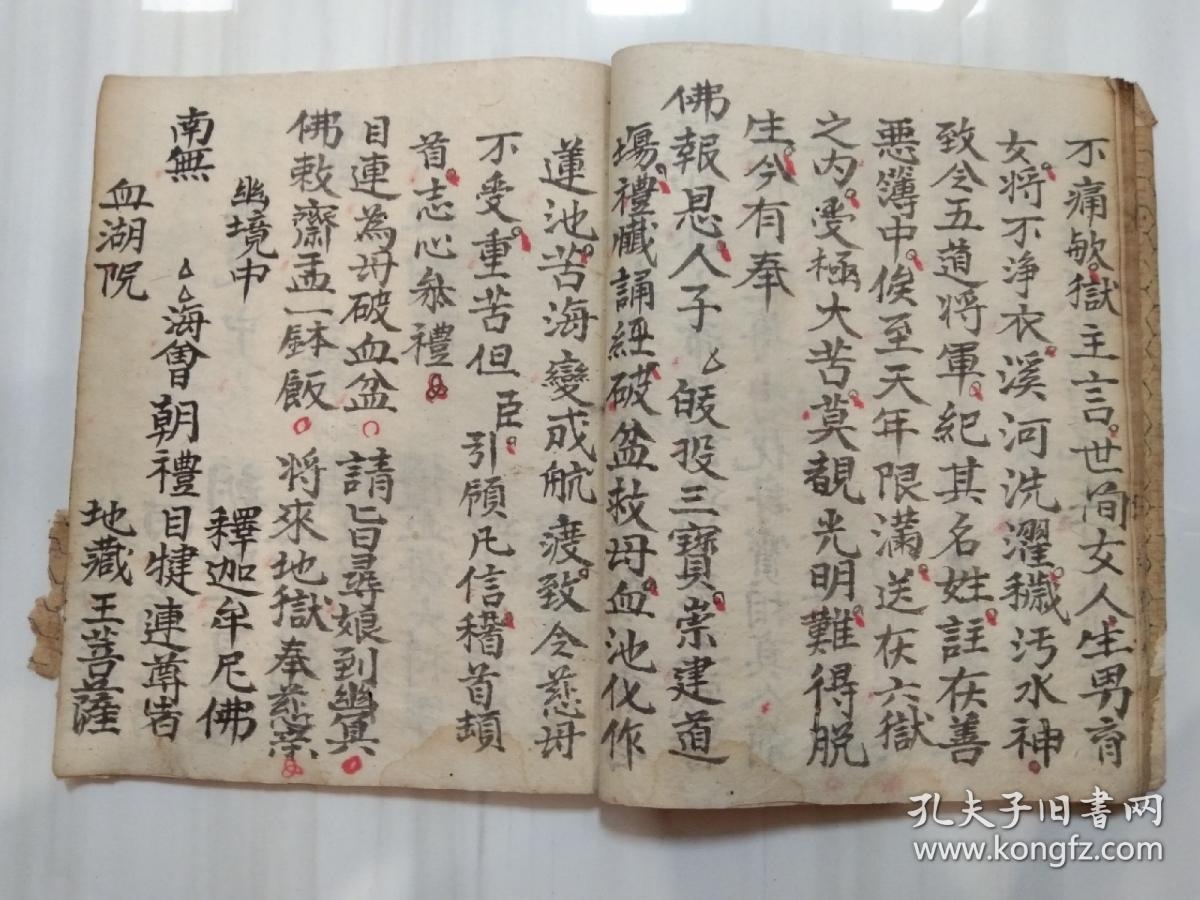 不痛敏獄主言世间女人生男育
女将不浄衣溪河洗濯穢污水神
致令五道将軍紀其名姓註在善
悪簿中俟至天年限満送在六獄
之内受極大苦莫覩光明難得脱
生今有奉
佛報恩人子 皈投三寶崇建道
塲禮懺誦經破盆救母血池化作
蓮池苦海變成航渡致令慈母
不受重苦但臣引領凡信稽首頓
首志心叅禮
目連為母破血盆 請旨尋娘到幽冥
佛敕齋盂一鉢飯 将來地獄奉慈
幽境中 釋迦牟尼佛
南無 海會朝禮目犍連尊者
血湖院 地藏王菩薩
孔夫子旧书网
www.kongfz.com